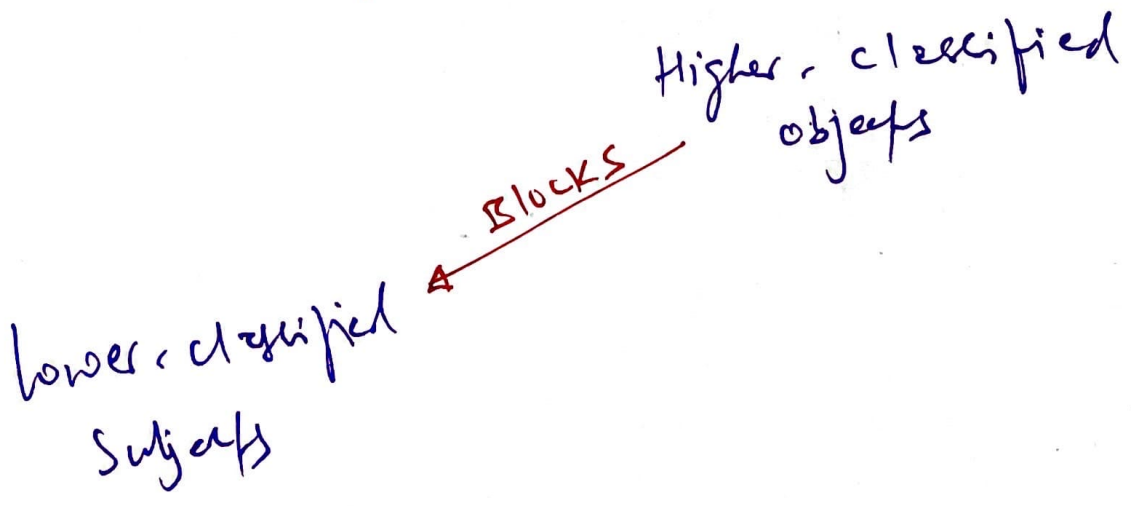 Higher-classified
objects
Blocks
Lower-classified
Subjects